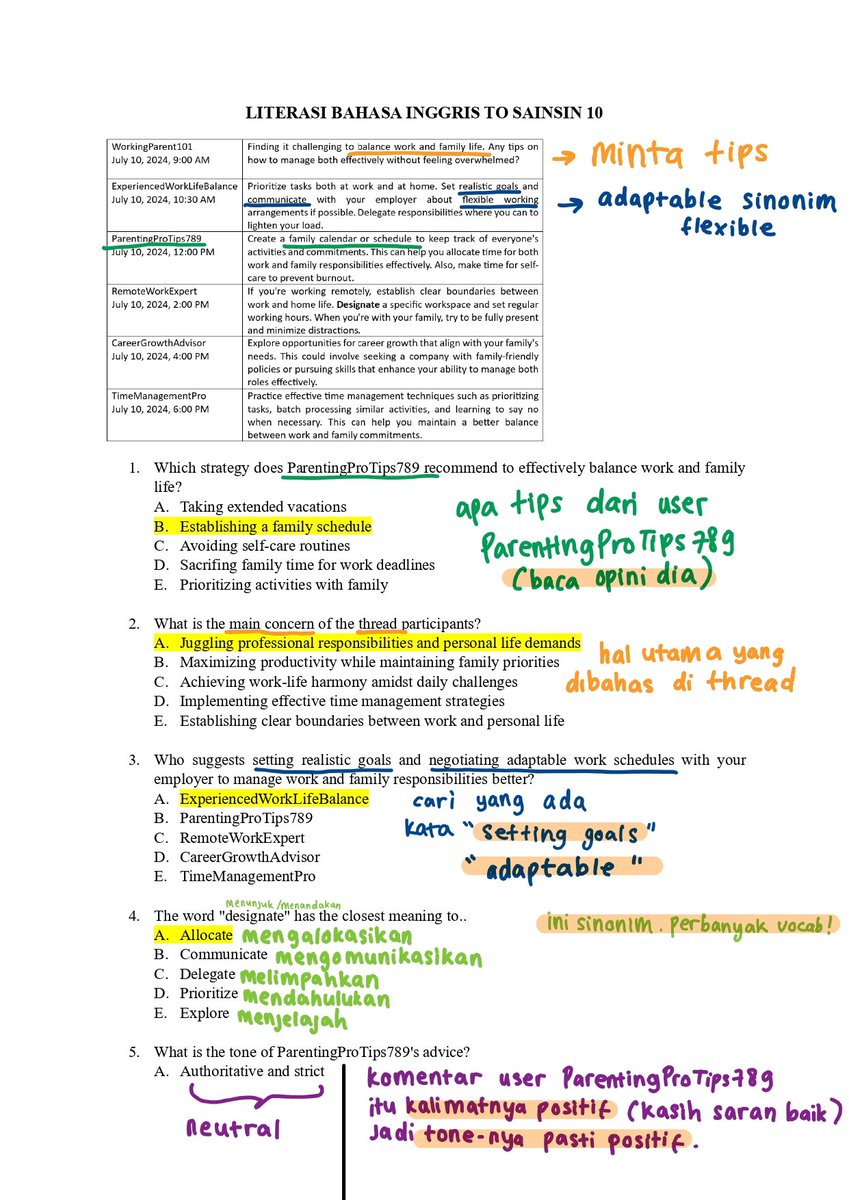 LITERASI BAHASA INGGRIS TO SAINSIN 10
WorkingParent101
July 10, 2024, 9:00 AM
Finding it challenging to balance work and family life. Any tips on
how to manage both effectively without feeling overwhelmed?
→ Minta tips
ExperiencedWorkLifeBalance
July 10, 2024, 10:30 AM
Prioritize tasks both at work and at home. Set realistic goals and
communicate with your employer about flexible working
arrangements if possible. Delegate responsibilities where you can to
lighten your load.
→ adaptable sinonim
flexible
ParentingProTips789
July 10, 2024, 12:00 PM
Create a family calendar or schedule to keep track of everyone's
activities and commitments. This can help you allocate time for both
work and family responsibilities effectively. Also, make time for self-
care to prevent burnout.
RemoteWorkExpert
July 10, 2024, 2:00 PM
If you're working remotely, establish clear boundaries between
work and home life. Designate a specific workspace and set regular
working hours. When you're with your family, try to be fully present
and minimize distractions.
CareerGrowthAdvisor
July 10, 2024, 4:00 PM
Explore opportunities for career growth that align with your family's
needs. This could involve seeking a company with family-friendly
policies or pursuing skills that enhance your ability to manage both
roles effectively.
TimeManagementPro
July 10, 2024, 6:00 PM
Practice effective time management techniques such as prioritizing
tasks, batch processing similar activities, and learning to say no
when necessary. This can help you maintain a better balance
between work and family commitments.
1. Which strategy does ParentingProTips789 recommend to effectively balance work and family
life?
A. Taking extended vacations
B. Establishing a family schedule
C. Avoiding self-care routines
D. Sacrifing family time for work deadlines
E. Prioritizing activities with family
apa tips dari user
ParentingProTips789
(baca opini dia)
2. What is the main concern of the thread participants?
A. Juggling professional responsibilities and personal life demands
B. Maximizing productivity while maintaining family priorities
C. Achieving work-life harmony amidst daily challenges
D. Implementing effective time management strategies
E. Establishing clear boundaries between work and personal life
hal utama yang
dibahas di thread
3. Who suggests setting realistic goals and negotiating adaptable work schedules with your
employer to manage work and family responsibilities better?
A. ExperiencedWorkLifeBalance
B. ParentingProTips789
C. RemoteWorkExpert
D. CareerGrowthAdvisor
E. TimeManagementPro
cari yang ada
kata "setting goals"
"adaptable"
menunjuk/menandakan
4. The word "designate" has the closest meaning to..
A. Allocate mengalokasikan
B. Communicate mengomunikasikan
C. Delegate melimpahkan
D. Prioritize mendahulukan
E. Explore menjelajah
ini sinonim. perbanyak vocab!
5. What is the tone of ParentingProTips789's advice?
A. Authoritative and strict
neutral
komentar user ParentingProTips789
itu kalimatnya positif (kasih saran baik)
Jadi tone-nya pasti positif.